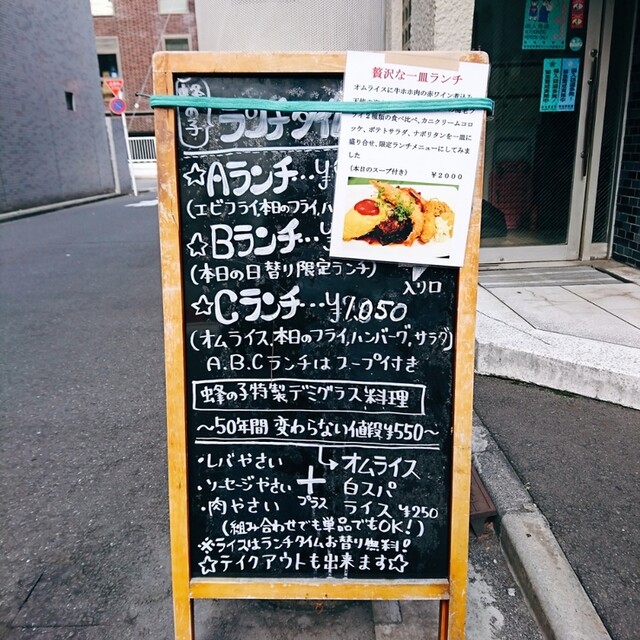 蜂の子
ランチタイム
☆Aランチ…¥
(エビフライ、本日のフライ、ハ
☆Bランチ…
(本日の日替り限定ランチ)
入り口
☆Cランチ…¥1.050
(オムライス、本日のフライ、ハンバーグ、サラダ)
A.B.Cランチはスープ付き
蜂の子特製デミグラス料理
〜50年間変わらない値段¥550〜
・レバやさい
・ソーセージやさい
・肉やさい
+
プラス
→オムライス
白スパ
ライス¥250
(組み合わせでも単品でもOK!)
※ライスはランチタイムお替り無料!
☆テイクアウトも出来ます☆
贅沢な一皿ランチ
オムライスに牛ホホ肉の赤ワイン煮込
ライ2種類の食べ比べ、カニクリームコロ
ッケ、ポテトサラダ、ナポリタンを一皿に
盛り合せ、限定ランチメニューにしてみま
した
(本日のスープ付き) ¥2000